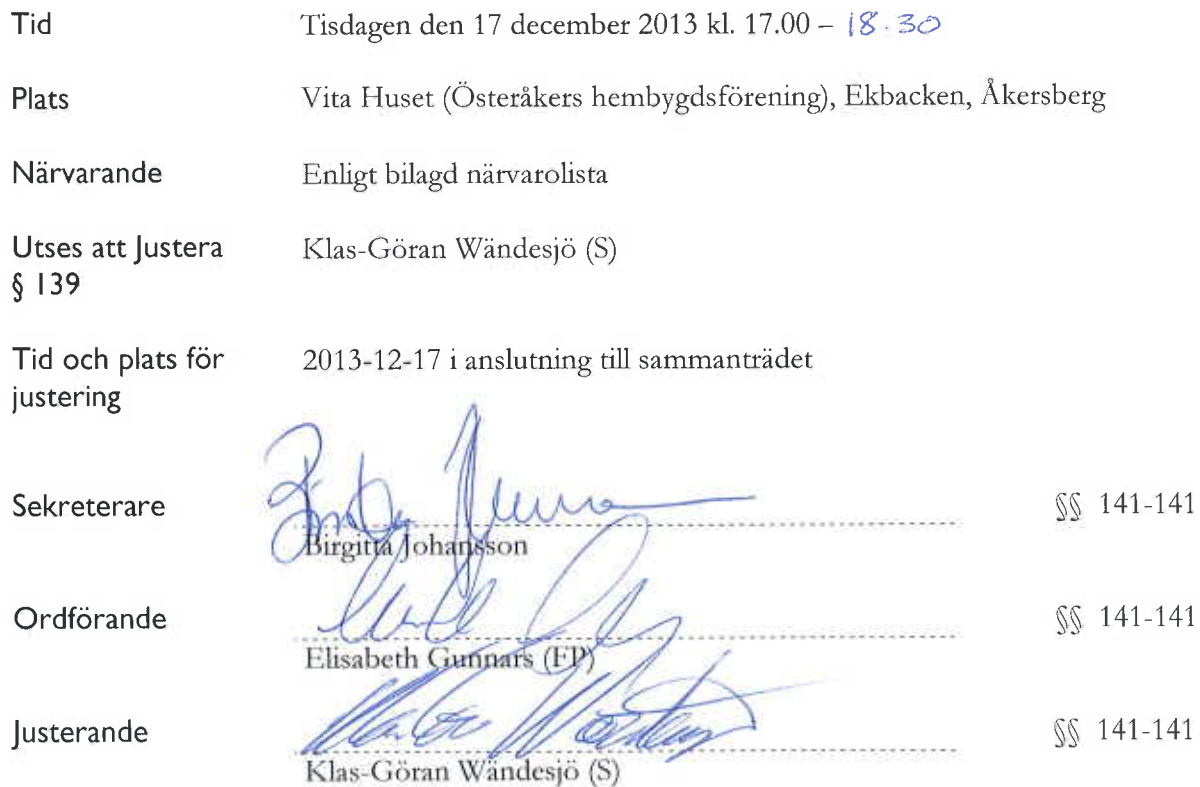 Tid Tisdagen den 17 december 2013 kl. 17.00 – 18.30
Plats Vita Huset (Österåkers hembygdsförening), Ekbacken, Åkersberg
Närvarande Enligt bilagd närvarolista
Utses att Justera Klas-Göran Wändesjö (S)
§ 139
Tid och plats för 2013-12-17 i anslutning till sammanträdet
justering
Sekreterare §§ 141-141
Birgitta Johansson
Ordförande §§ 141-141
Elisabeth Gunnars (FP)
Justerande §§ 141-141
Klas-Göran Wändesjö (S)